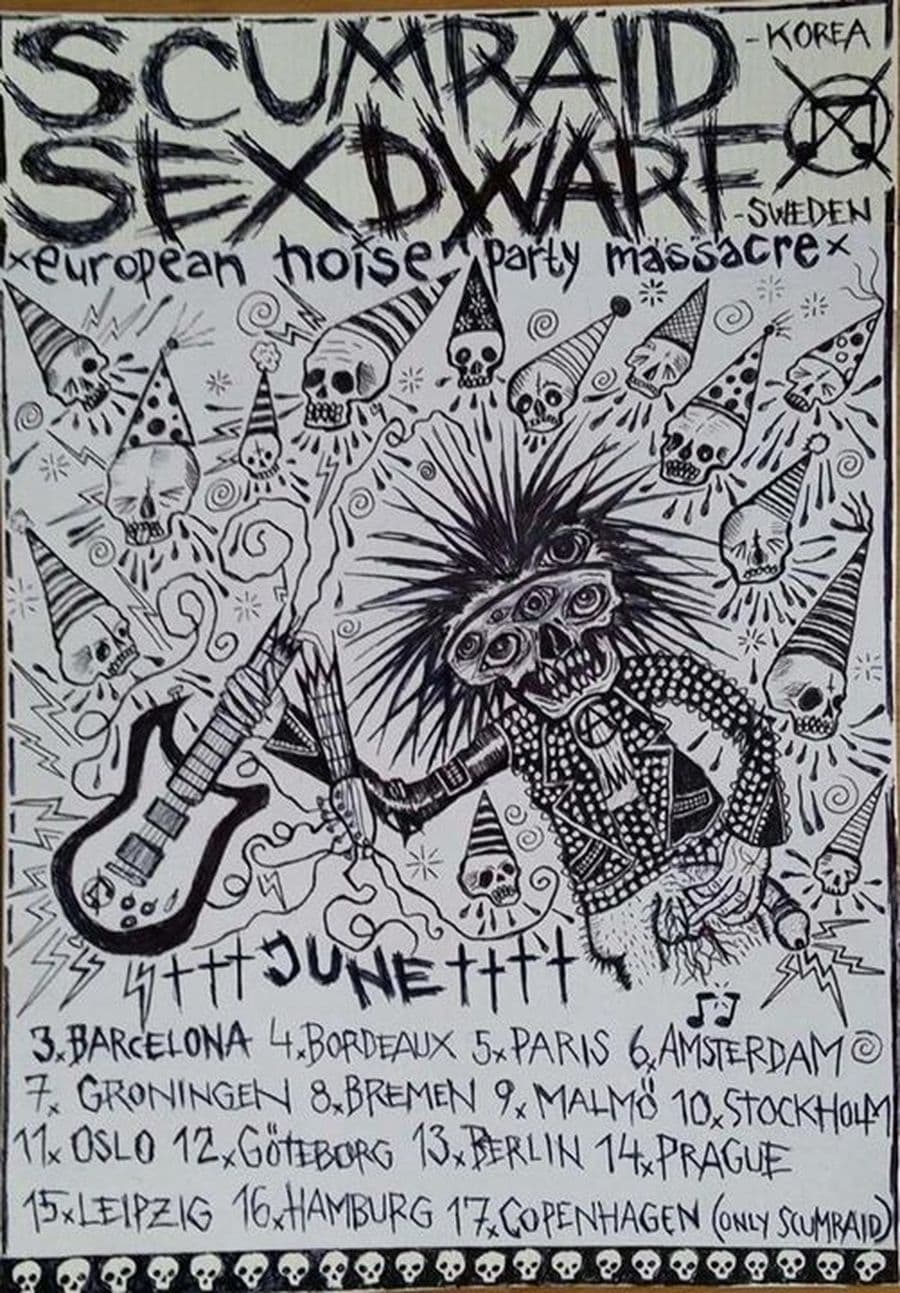 SCUMRAID -KOREA
SEXDWARF
-SWEDEN
×european noise party massacre×
JUNE
3.×BARCELONA 4.×BORDEAUX 5×PARIS 6.×AMSTERDAM
7.× GRONINGEN 8.×BREMEN 9.× MALMÖ 10.×STOCKHOLM
11.× OSLO 12.×GÖTEBORG 13.×BERLIN 14.×PRAGUE
15×LEIPZIG 16.×HAMBURG 17.×COPENHAGEN (ONLY SCUMRAID)